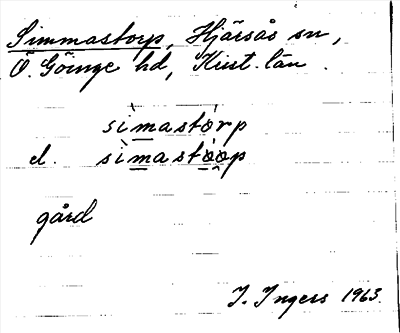 Simmastorp, Hjärsås sn,
Ö. Göinge hd, Krist. län.
sìmastórp
el. sìmastóop
gård
I. Ingers 1963.